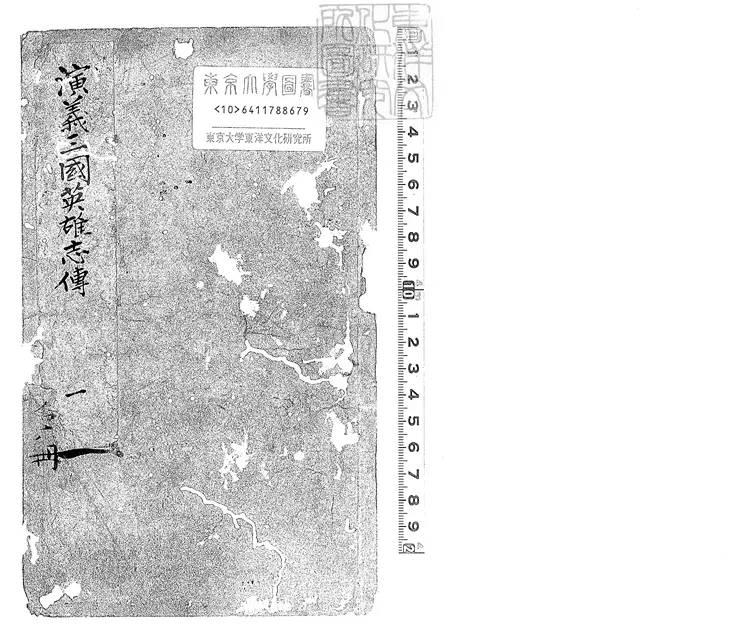 演義三國英雄志傳
一
全八冊
東京大學圖書
<10>6411788679
東京大学東洋文化研究所
1 2 3 4 5 6 7 8 9 10 1 2 3 4 5 6 7 8 9